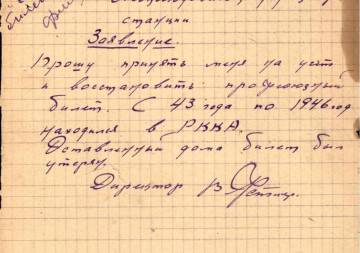 станции
Заявление.
Прошу принять меня на учёт
и восстановить профсоюзный
билет. С 43 года по 1946 год
находился в РККА.
Оставленный дома билет был
утерян.
Директор